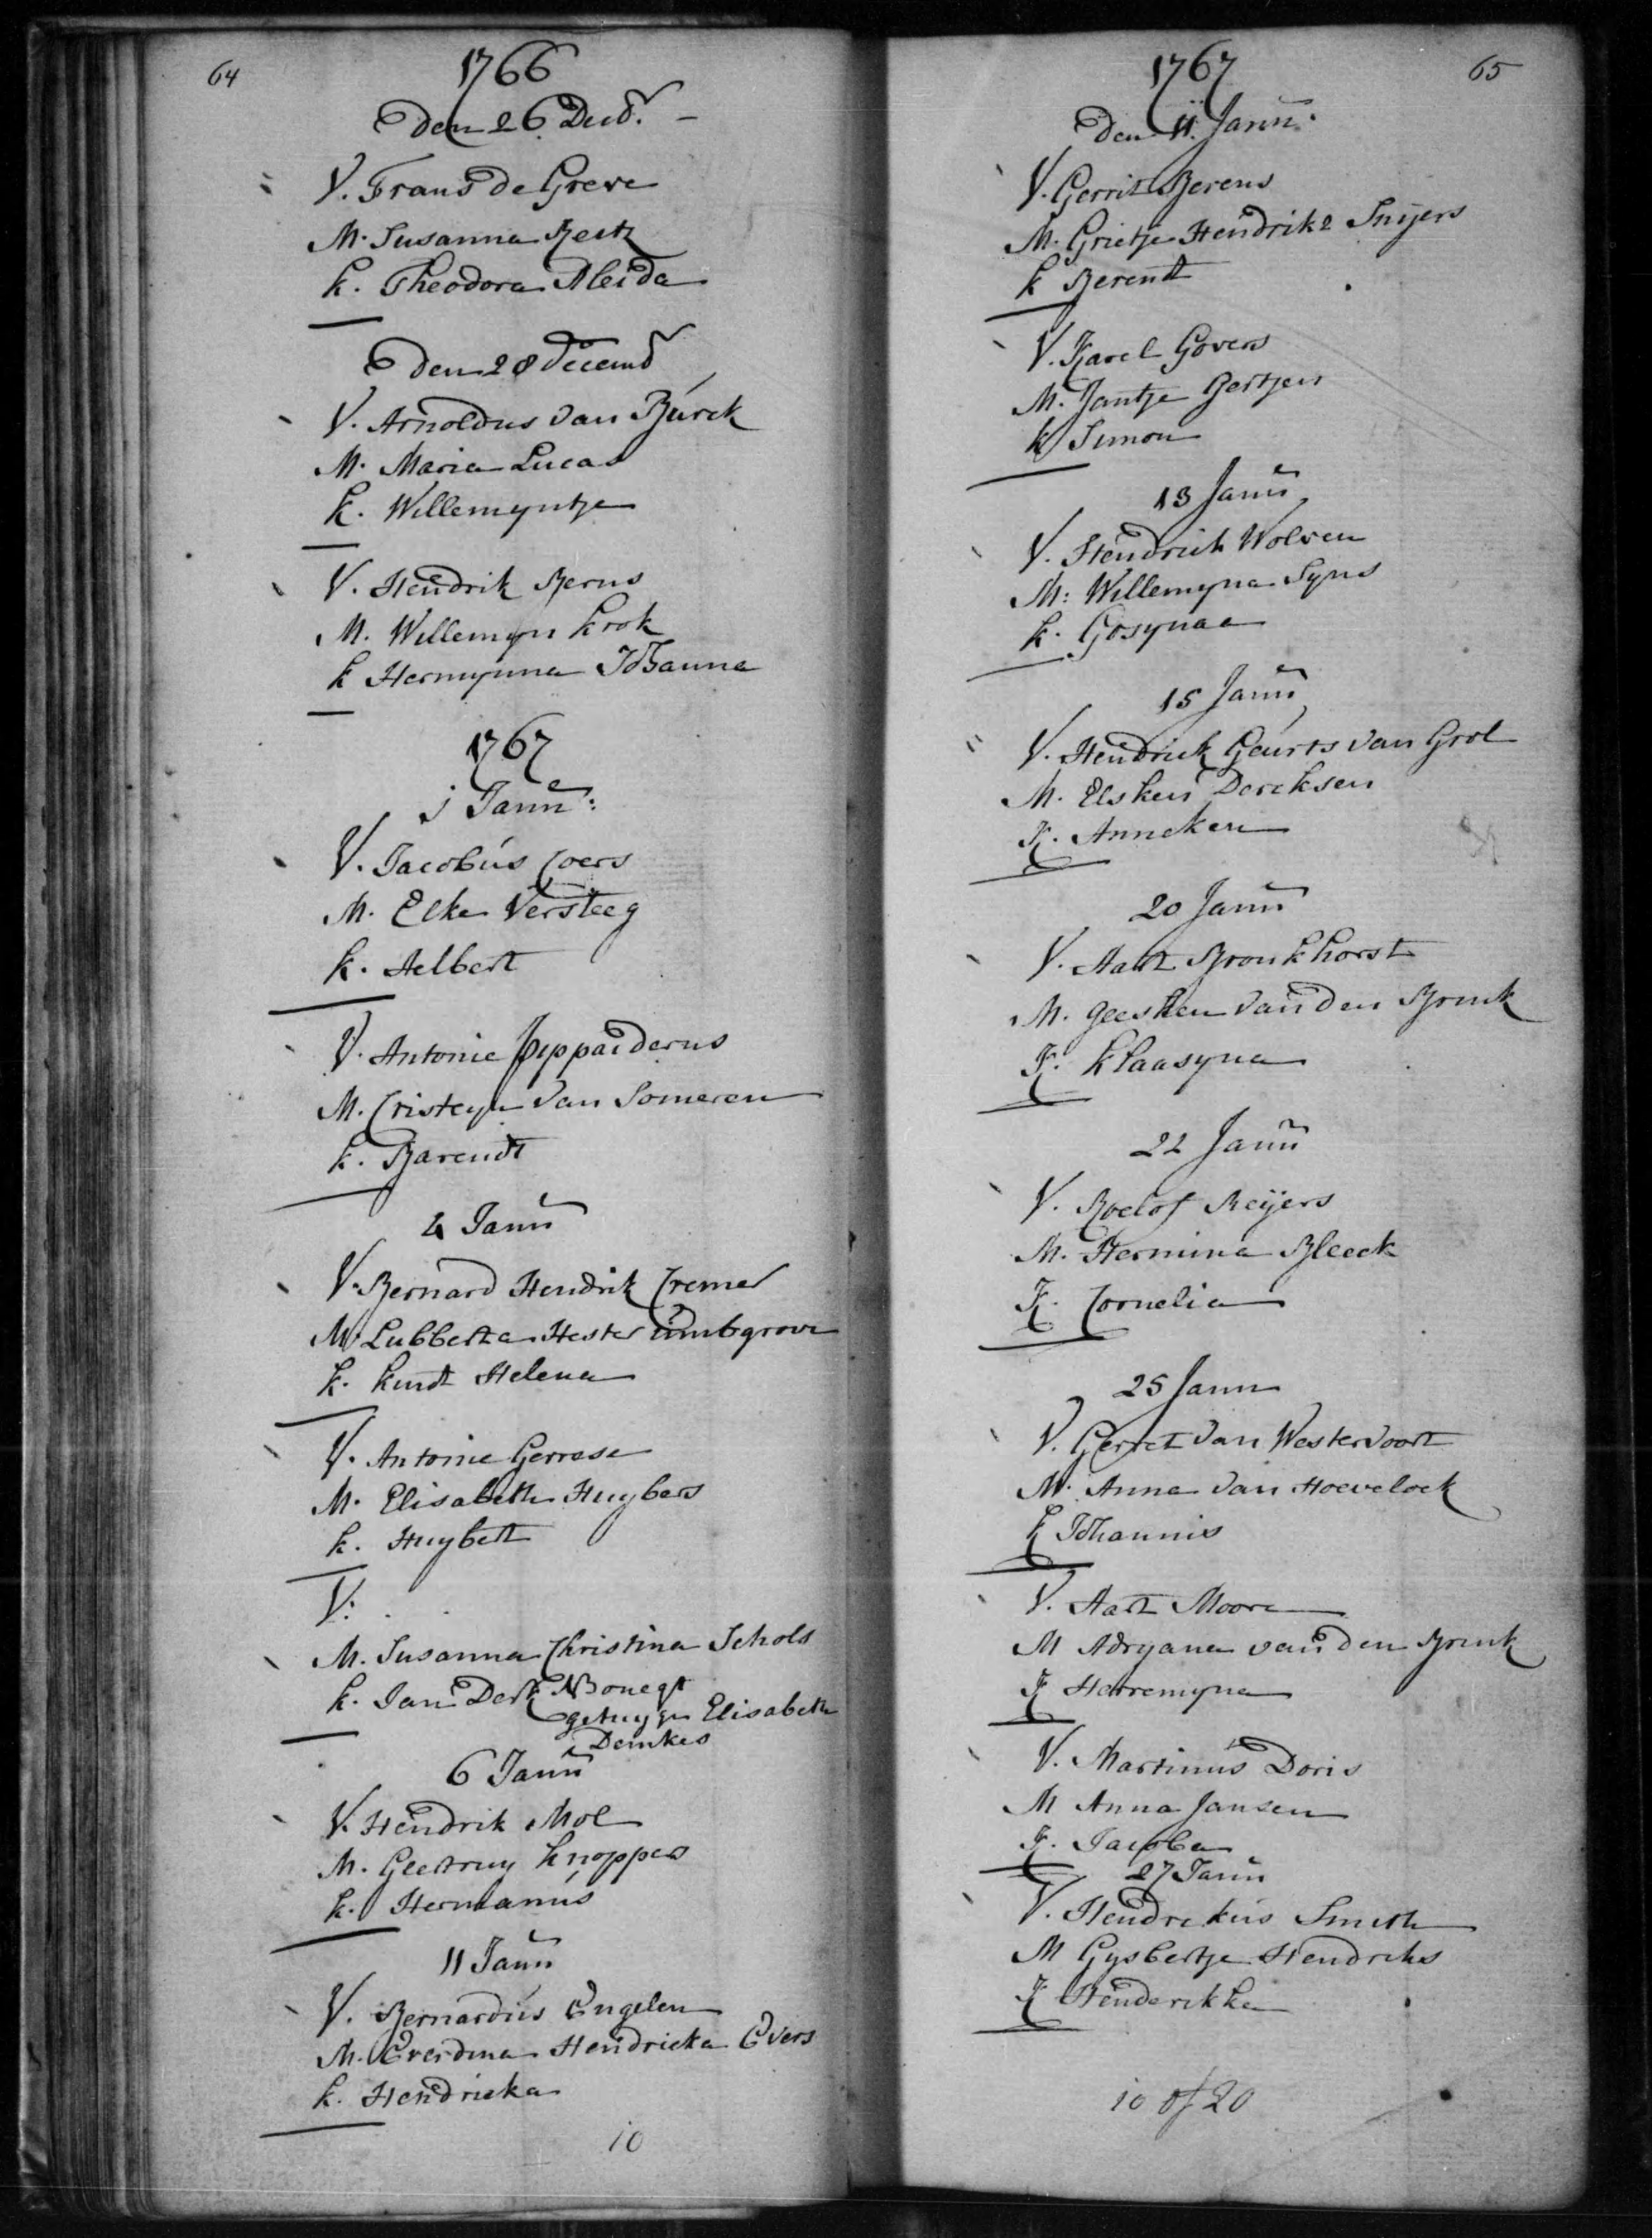 64
1766
den 26 Decb.
V. Frans de Greve
M. Susanna Bertz
k. Theodora Aleida
den 28 Decemb
V. Arnoldus van Burck
M. Maria Lucas
k. Willemyntje
V. Hendrik Berns
M. Willemyn Krok
k Hermynna Johanna
1767
1 Janu:
V. Jacobus Coers
M. Elke Versteeg
k. Aelbert
V. Antonie
M. Cristeyn van Someren
k. Barendt
4 Janu
V. Bernard Hendrik Cremer
M. Lubberta Hester Umbgrove
k. kindt Helena
V. Antonie Gerrese
M. Elisabeth Huybers
k. Huybert
V:
M. Susanna Christina Schols
k. Jan Derk NB onegt
getuyge Elisabeth
Demkes
6 Janu
V. Hendrik Mol
M. Geertruy Knoppers
k. Hermanus
11 Janu
V. Bernardus Engelen
M. Everdina Hendricka Evers
k. Hendricka
10
65
1767
den 11. Janu.
V. Gerrit Berens
M. Grietje Hendriks Snijers
k Berendt
V. Karel Govers
M. Jantje Gertsen
k Simon
13 Janu
V. Hendrick Wolven
M: Willemyna Syns
k. Gosynaa
15 Janu
V. Hendrick Geurts van Grol
M. Elsken Dercksen
K. Anneken
20 Janu
V. Aart Bronkhorst
M. Geesken van den Brink
K. Klaasyna
22 Janu
V. Roelof Reijers
M. Hermina Bleeck
K. Cornelia
25 Janu
V. Gerret van Westervoort
M. Anna van Hoevelock
k Johannis
V. Aart Moore
M Adryana van den Brink
K Harremyna
V. Martinus Doris
M Anna Jansen
K. Jacoba
27 Janu
V. Hendrekus Smith
M Gysbertje Hendriks
K Henderikka
10 of 20